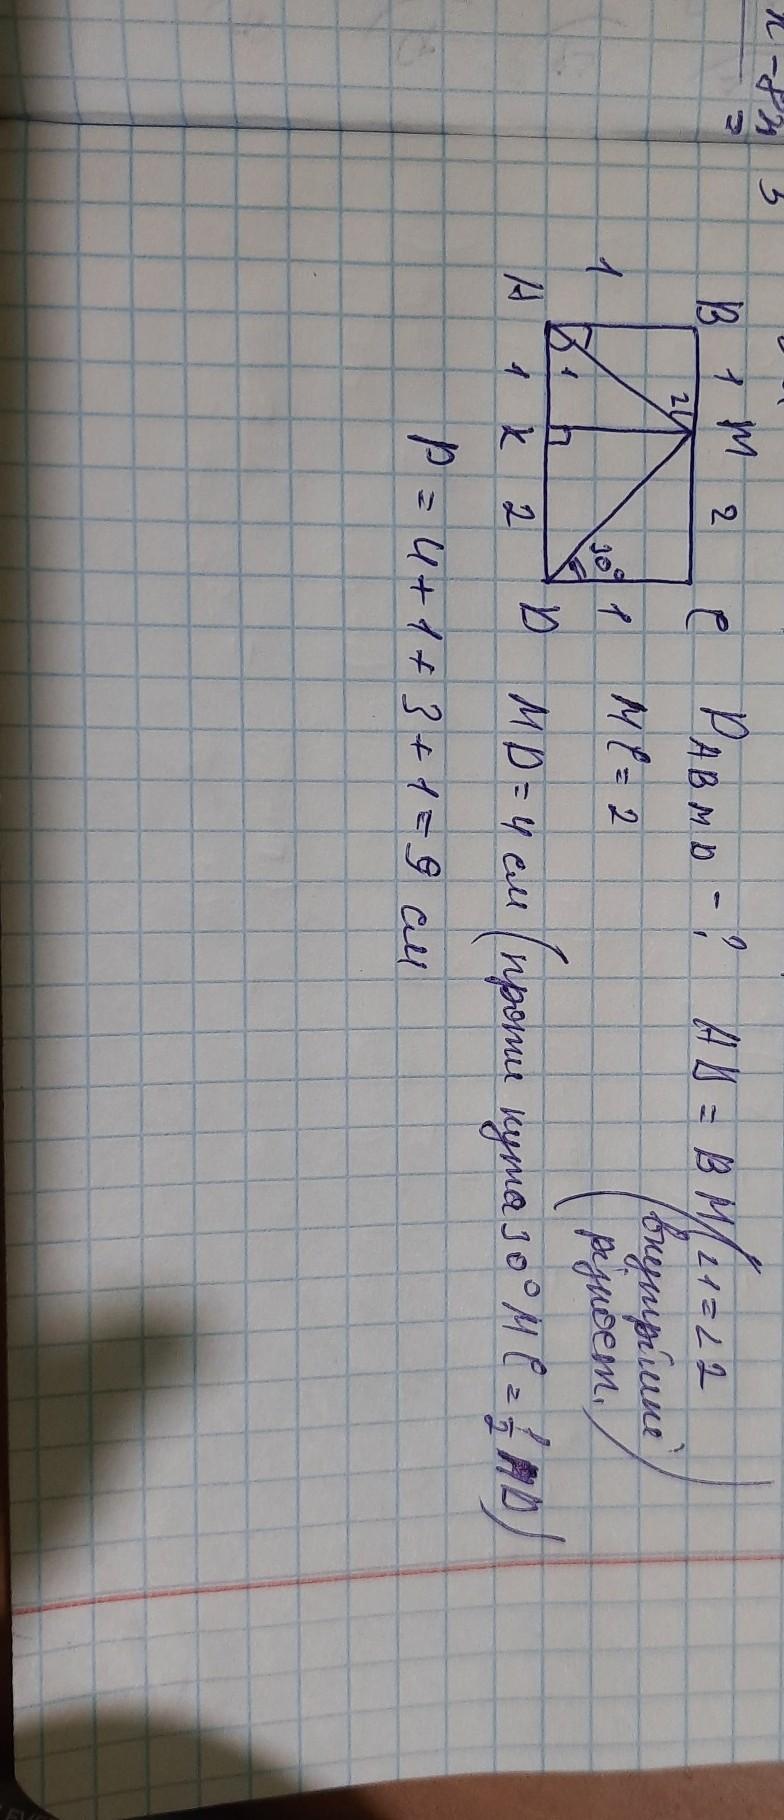 B 1 M 2 C
2
1
30°
1
1
A 1 K 2 D
P ABMD - ? AB = BM (∠1 = ∠2
(внутрішні
різност.)
MC = 2
MD = 4 см (проти кута 30° MC = 1/2 MD)
P = 4 + 1 + 3 + 1 = 9 см